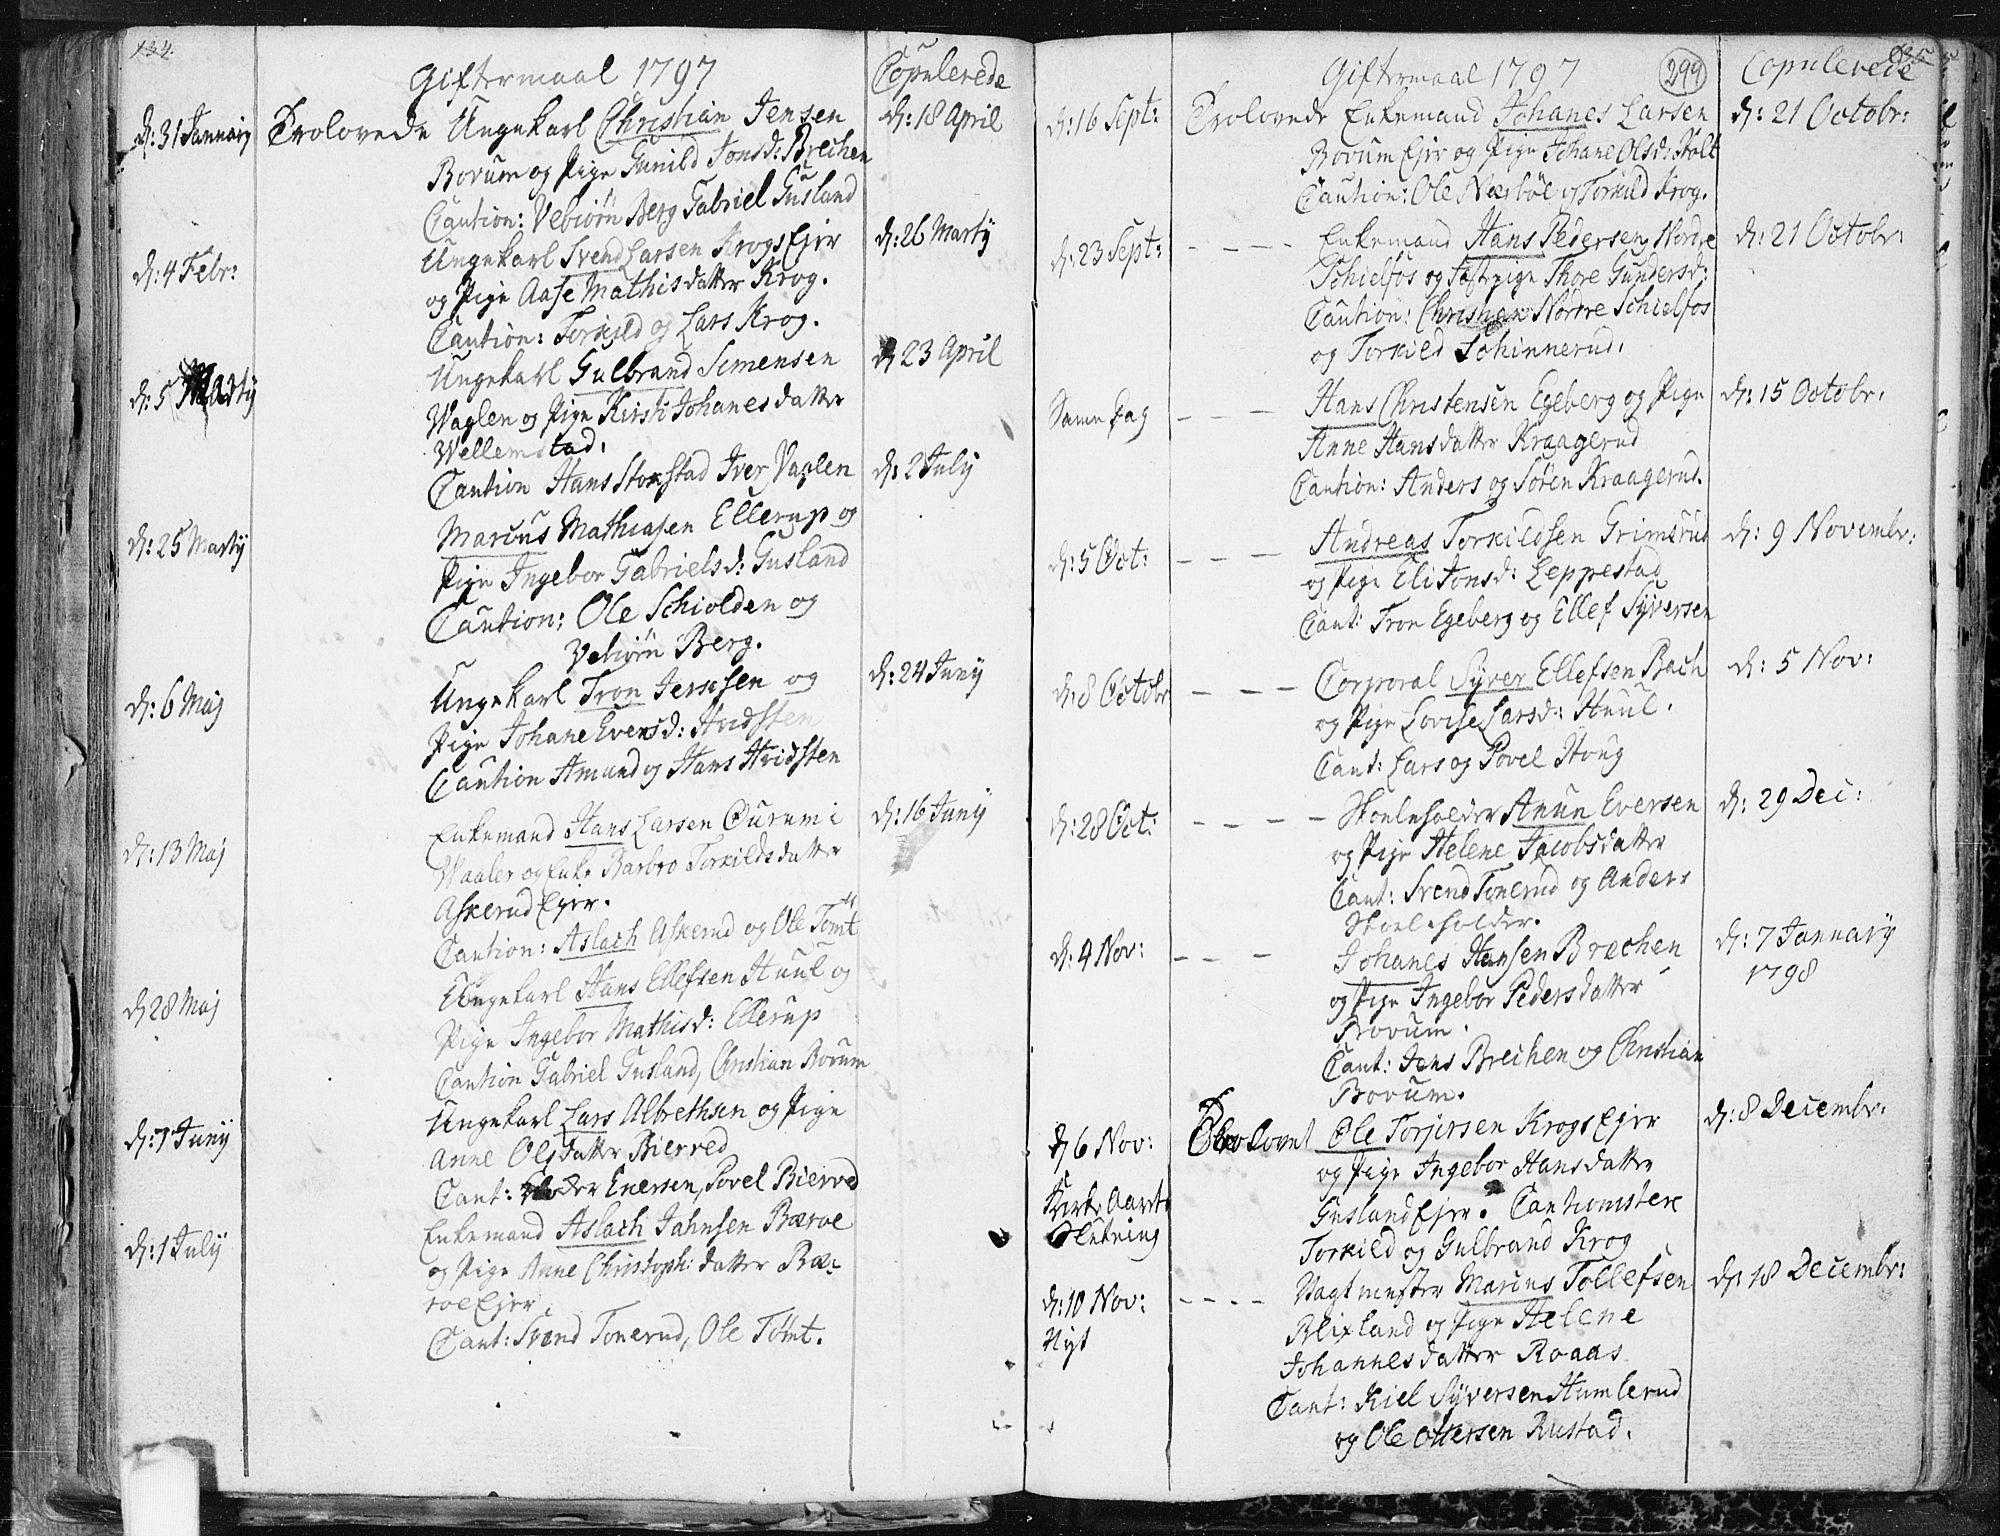 134.
Giftermaal 1797
Copulerede
d: 31 Januarÿ Trolovede Ungekarl Christian Jensen d: 18 April
Borum og Pige Gunild Jonsd: Brechen
Caution: Vebiørn Berg Gabriel Gusland
d: 4 Febr: Ungekarl Svend Larsen Krogs Ejer d: 26 Martÿ
og Pige Aase Mathisdatter Krog.
Caution: Torkild og Lars Krog.
d: 5 Martÿ Ungekarl Gulbrand Simensen d 23 April
Waglen og Pige Kirsti Johanesdatter
Wellemstad.
Caution Hans Stokstad Iver Vaglen d: 2 Julÿ
d: 25 Martÿ Marcus Mathiasen Ellerup og
Pige Ingebor Gabrielsd: Gusland
Caution: Ole Schiolden og
Vebiørn Berg.
d: 6 Maj Ungekarl Tron Jensen og d: 24 Junÿ
Pige Johane Evensd: Hvidsten
Caution Amund og Hans Hvidsten
d: 13 Maj Enkemand Hans Larsen Ourum i d: 16 Junÿ
Waaler og Enke Barbro Torkildsdatter
Askerud Ejer.
Caution: Aslach Askerud og Ole Tomt
d 28 Maj Ungekarl Hans Ellefsen Huul og
Pige Ingebor Mathisd: Ellerup
Caution Gabriel Gusland, Christian Borum
d: 7 Junÿ Ungekarl Lars Albrethsen og Pige
Anne Olsdatter Bierved
Caut: Enersen, Povel Bierved
d: 1 Julÿ Enkemand Aslach Jahnsen Bæroe
og Pige Anne Christoph: datter Bæ-
roe Ejer.
Caut: Svend Tonerud, Ole Tømt.
135
Giftermaal 1797
299
Copulerede
d: 16 Sept: Trolovede Enkemand Johanes Larsen d: 21 Octobr:
Borum Ejer og Pige Johane Olsd: Holt
Caution: Ole Næsbøl og Torkild Krog.
d: 23 Sept: Enkemand Hans Pedersen Nordre d: 21 Octobr:
Schielfos og Pige Thore Gundersd:
Caution: Christian Nordre Schielfos
og Torkild Schinnerud.
Samme Dag Hans Christensen Egeberg og Pige d: 15 Octobr.
Anne Hansdatter Kraagerud
Caution: Anders og Søren Kraagerud.
d: 5 Oct: Andreas Torkildsen Grimsrud d: 9 Novembr:
og Pige Eli Jonsd: Leppestad
Caut: Tron Egeberg og Ellef Sÿversen
d: 8 Octobr Corporal Sÿver Ellefsen Bach d: 5 Nov:
og Pige Lovise Larsd: Huul.
Caut: Lars og Povel Houg
d: 28 Oct: Skoleholder Anun Eversen d: 29 Dec:
og Pige Helene Jacobsdatter
Caut: Svend Tonerud og Anders
Skoleholder.
d: 4 Nov: Johanes Hansen Brechen d: 7 Januarÿ
og Pige Ingebor Pedersdatter 1798
Borum.
Caut: Jens Brechen og Christian
Borum.
d 6 Nov: Trolovet Ole Torjersen Krogs Ejer d: 8 Decembr:
og Pige Ingebor Hansdatter
Kirke Aarets Gusland Ejer. Cautionister
Slutning Torkild og Gulbrand Krog
d: 10 Nov: Vagtmester Marcus Tollefsen d: 18 Decembr:
Nyt Blixland og Pige Helene
Johannesdatter Roaas
Caut: Kiel Sÿversen Humlerud
og Ole Ottersen Rustad.